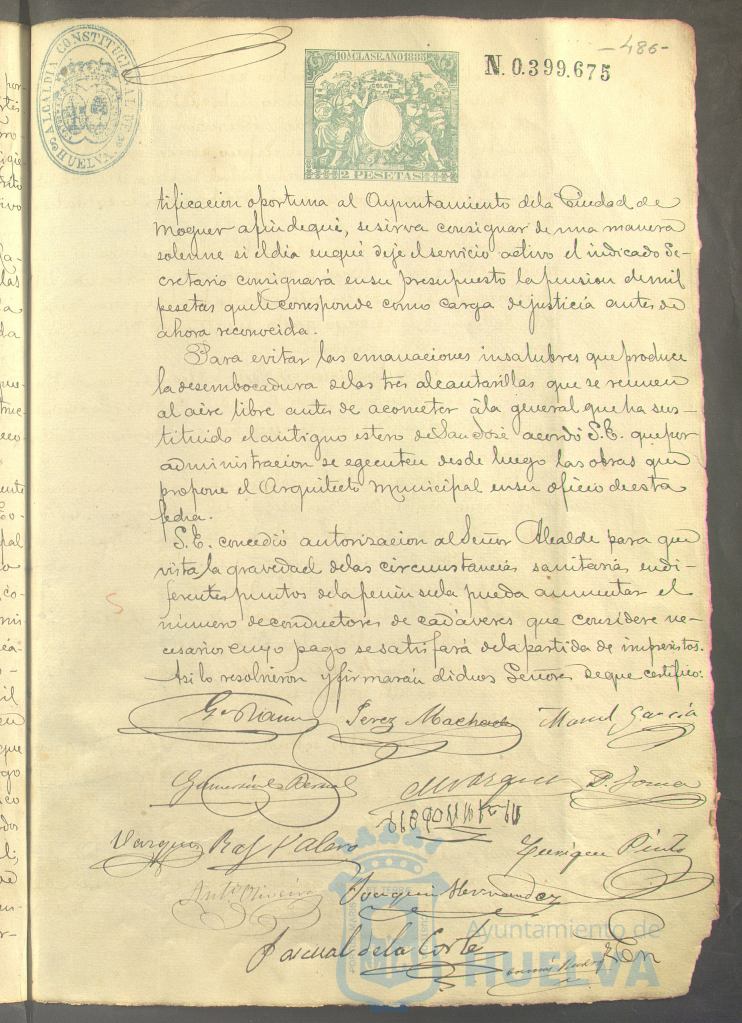 -486-
ALCALDIA CONSTITUCIONAL DE HUELVA
10ª CLASE. AÑO 1885
2 PESETAS
N. 0.399.675
tificacion oportuna al Ayuntamiento dela Ciudad de
Moguer afin dequé, sesirva consignar de una manera
solemne si eldia enqué deje elservicio activo el indicado Se-
cretario consignará ensu presupuesto lapension demil
pesetas quele corresponde como carga dejusticia antes de
ahora reconocida.
Para evitar las emanaciones insalubres que produce
la desembocadura delas tres alcantarillas que se reunen
al aire libre antes de acometer á la general que ha sus-
tituido el antiguo estero de San José acordó S.E. que por
administracion se egecuten desde luego las obras que
propone el Arquitecto Municipal ensu oficio deesta
fecha.
S.E. concedió autorizacion al Señor Alcalde para que
vista la gravedad delas circunstancias sanitarias endi-
ferentes puntos dela peninsula pueda aumentar el
número deconductores de cadáveres que considere ne-
cesarios cuyo pago sesatisfará dela partida de imprevistos.
Asi lo resolvieron y firmarán dichos Señores deque certifico.
Perez Machado
Manuel García
Bernal
Vazquez
Vargas
Raf Valero
Enrique Pinto
Antº Oliveira
Joaquin Hernandez
Pascual dela Corte
Ayuntamiento de
HUELVA